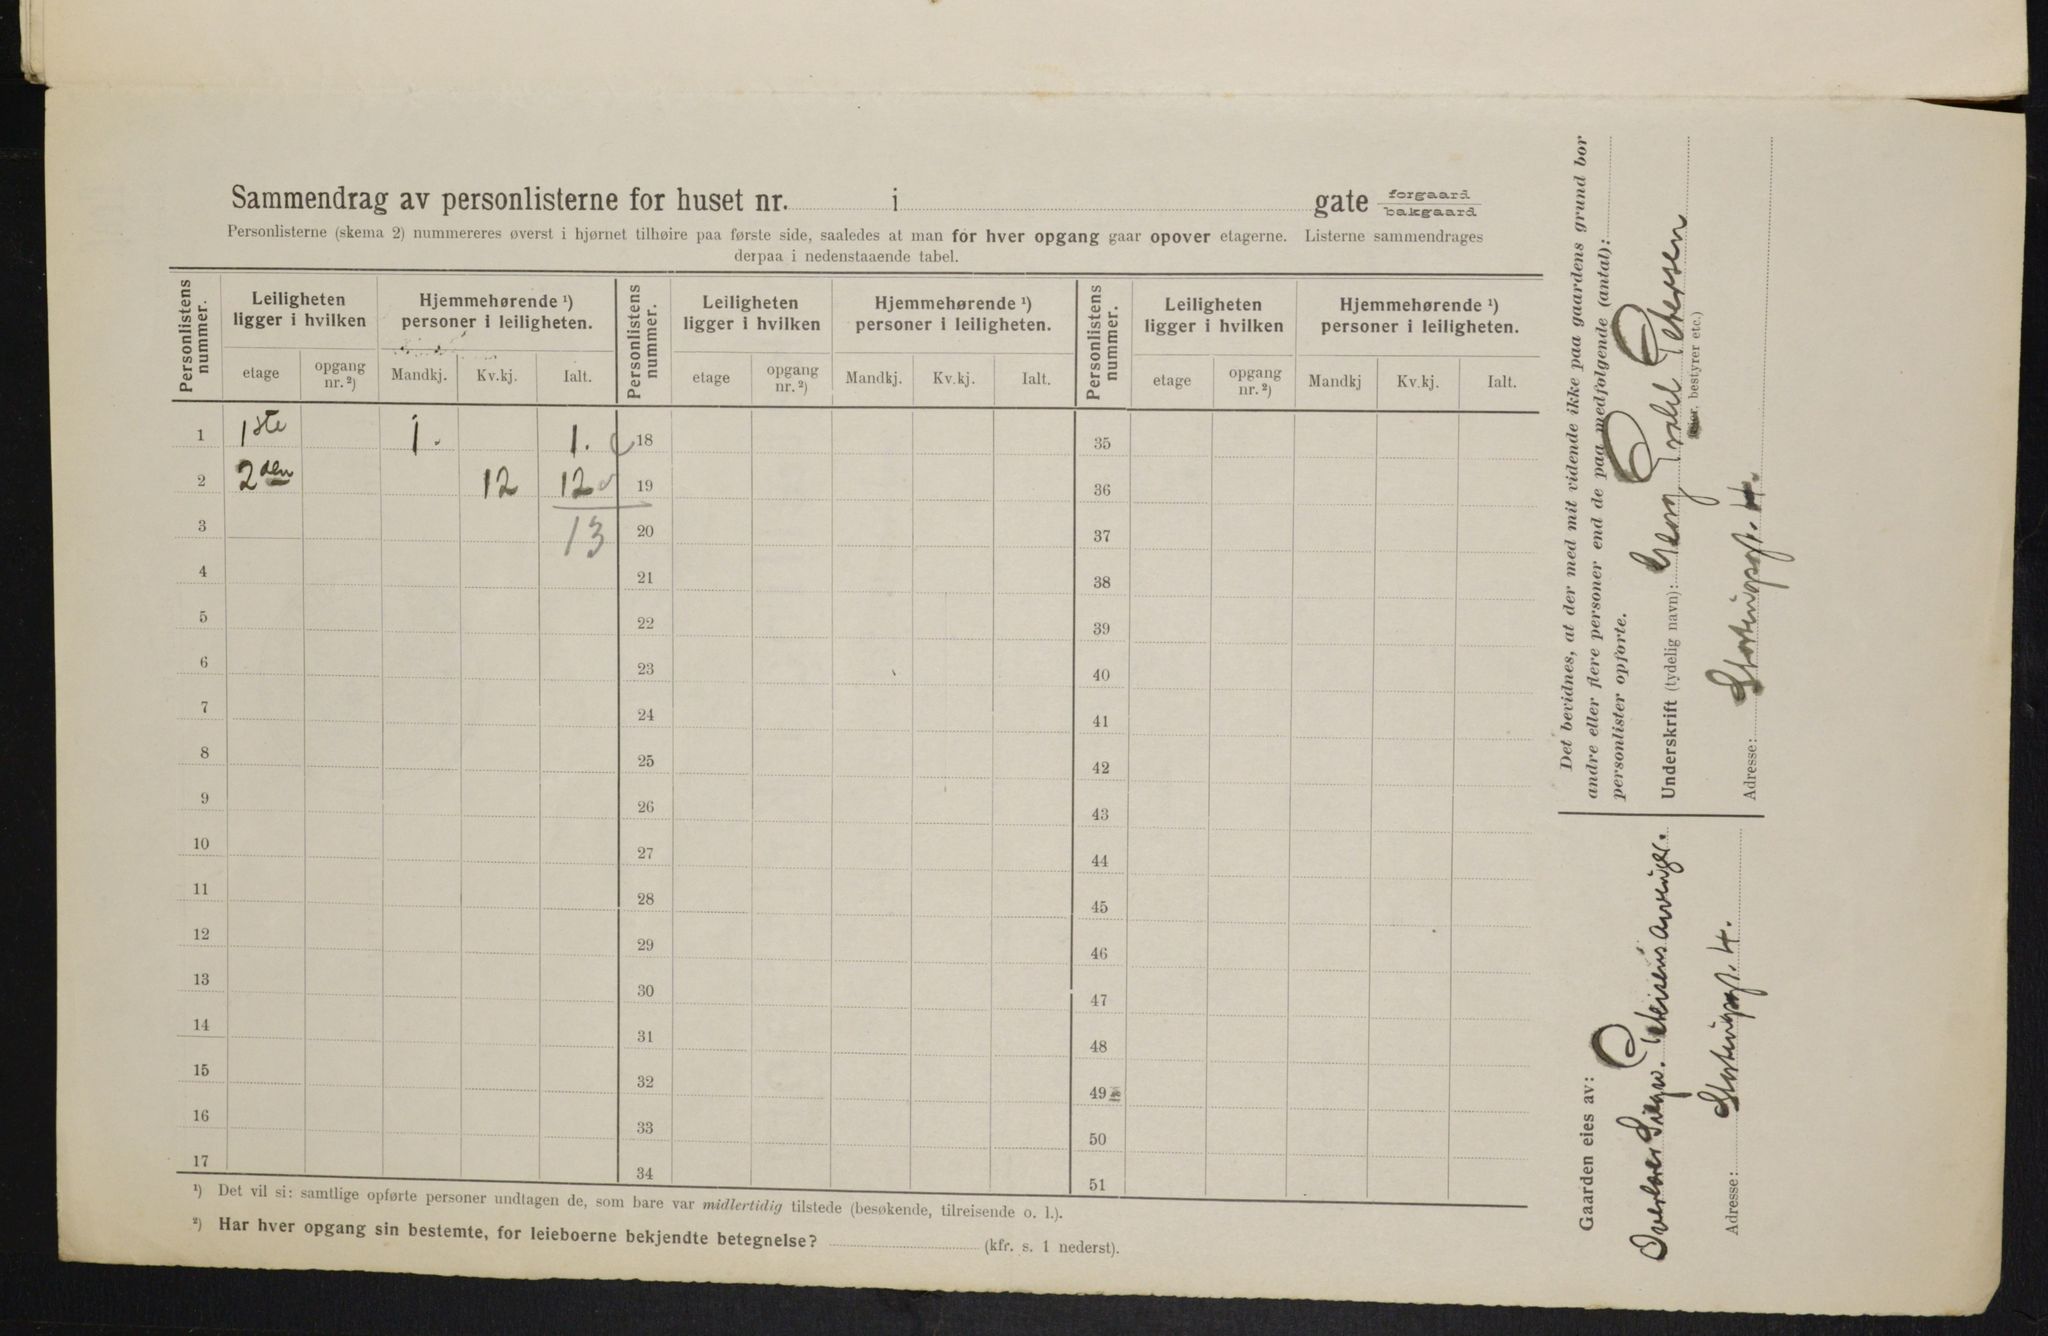 Sammendrag av personlisterne for huset nr. i gate forgaard bakgaard
Personlisterne (skema 2) nummereres øverst i hjørnet tilhøire paa første side, saaledes at man for hver opgang gaar opover etagerne. Listerne sammendrages
derpaa i nedenstaaende tabel.
Personlistens nummer. Leiligheten ligger i hvilken Hjemmehørende ¹) personer i leiligheten. Personlistens nummer. Leiligheten ligger i hvilken Hjemmehørende ¹) personer i leiligheten. Personlistens nummer. Leiligheten ligger i hvilken Hjemmehørende ¹) personer i leiligheten.
etage opgang nr. ²) Mandkj. Kv.kj. Ialt. etage opgang nr. ²) Mandkj. Kv.kj. Ialt. etage opgang nr. ²) Mandkj Kv.kj. Ialt.
1 1ste 1. 1. 18 35
2 2den 12 12 19 36
3 13 20 37
4 21 38
5 22 39
6 23 40
7 24 41
8 25 42
9 26 43
10 27 44
11 28 45
12 29 46
13 30 47
14 31 48
15 32 49
16 33 50
17 34 51
¹) Det vil si: samtlige opførte personer undtagen de, som bare var midlertidig tilstede (besøkende, tilreisende o. l.).
²) Har hver opgang sin bestemte, for leieboerne bekjendte betegnelse? (kfr. s. 1 nederst).
Det bevidnes, at der med mit vidende ikke paa gaardens grund bor
andre eller flere personer end de paa medfølgende (antal):
personlister opførte.
Underskrift (tydelig navn): Georg Petersen
bestyrer etc.)
Adresse: Stortingsg. 4.
Gaarden eies av:
Petersens arvinger.
Adresse: Stortingsg. 4.